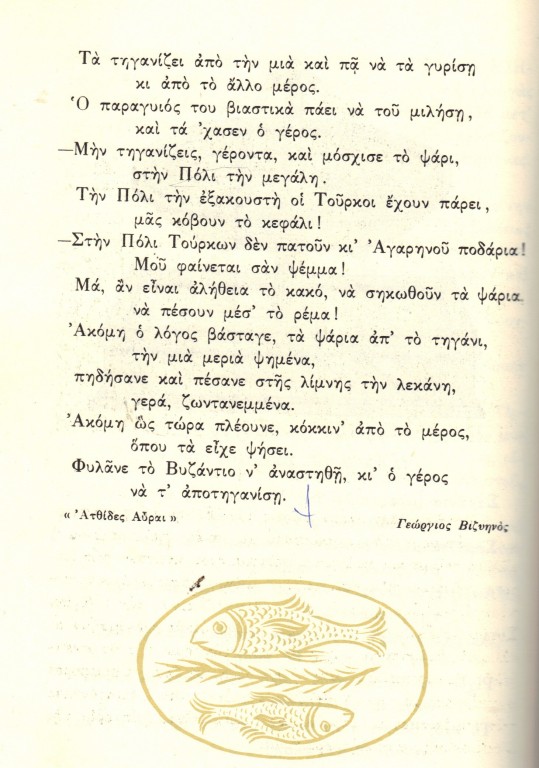 Τὰ τηγανίζει ἀπὸ τὴν μιὰ καὶ πᾷ νὰ τὰ γυρίσῃ
κι ἀπὸ τὸ ἄλλο μέρος.
Ὁ παραγυιός του βιαστικὰ πάει νὰ τοῦ μιλήσῃ,
καὶ τά ’χασεν ὁ γέρος.
—Μὴν τηγανίζεις, γέροντα, καὶ μόσχισε τὸ ψάρι,
στὴν Πόλι τὴν μεγάλη.
Τὴν Πόλι τὴν ἐξακουστὴ οἱ Τοῦρκοι ἔχουν πάρει,
μᾶς κόβουν τὸ κεφάλι!
—Στὴν Πόλι Τούρκων δὲν πατοῦν κι’ Ἀγαρηνοῦ ποδάρια!
Μοῦ φαίνεται σὰν ψέμμα!
Μά, ἂν εἶναι ἀλήθεια τὸ κακό, νὰ σηκωθοῦν τὰ ψάρια
νὰ πέσουν μέσ’ τὸ ρέμα!
Ἀκόμη ὁ λόγος βάσταγε, τὰ ψάρια ἀπ’ τὸ τηγάνι,
τὴν μιὰ μεριὰ ψημένα,
πηδήσανε καὶ πέσανε στῆς λίμνης τὴν λεκάνη,
γερά, ζωντανεμμένα.
Ἀκόμη ὣς τώρα πλέουνε, κόκκιν’ ἀπὸ τὸ μέρος,
ὅπου τὰ εἶχε ψήσει.
Φυλᾶνε τὸ Βυζάντιο ν’ ἀναστηθῇ, κι’ ὁ γέρος
νὰ τ’ ἀποτηγανίσῃ.
« Ἀτθίδες Αὖραι »
Γεώργιος Βιζυηνὸς